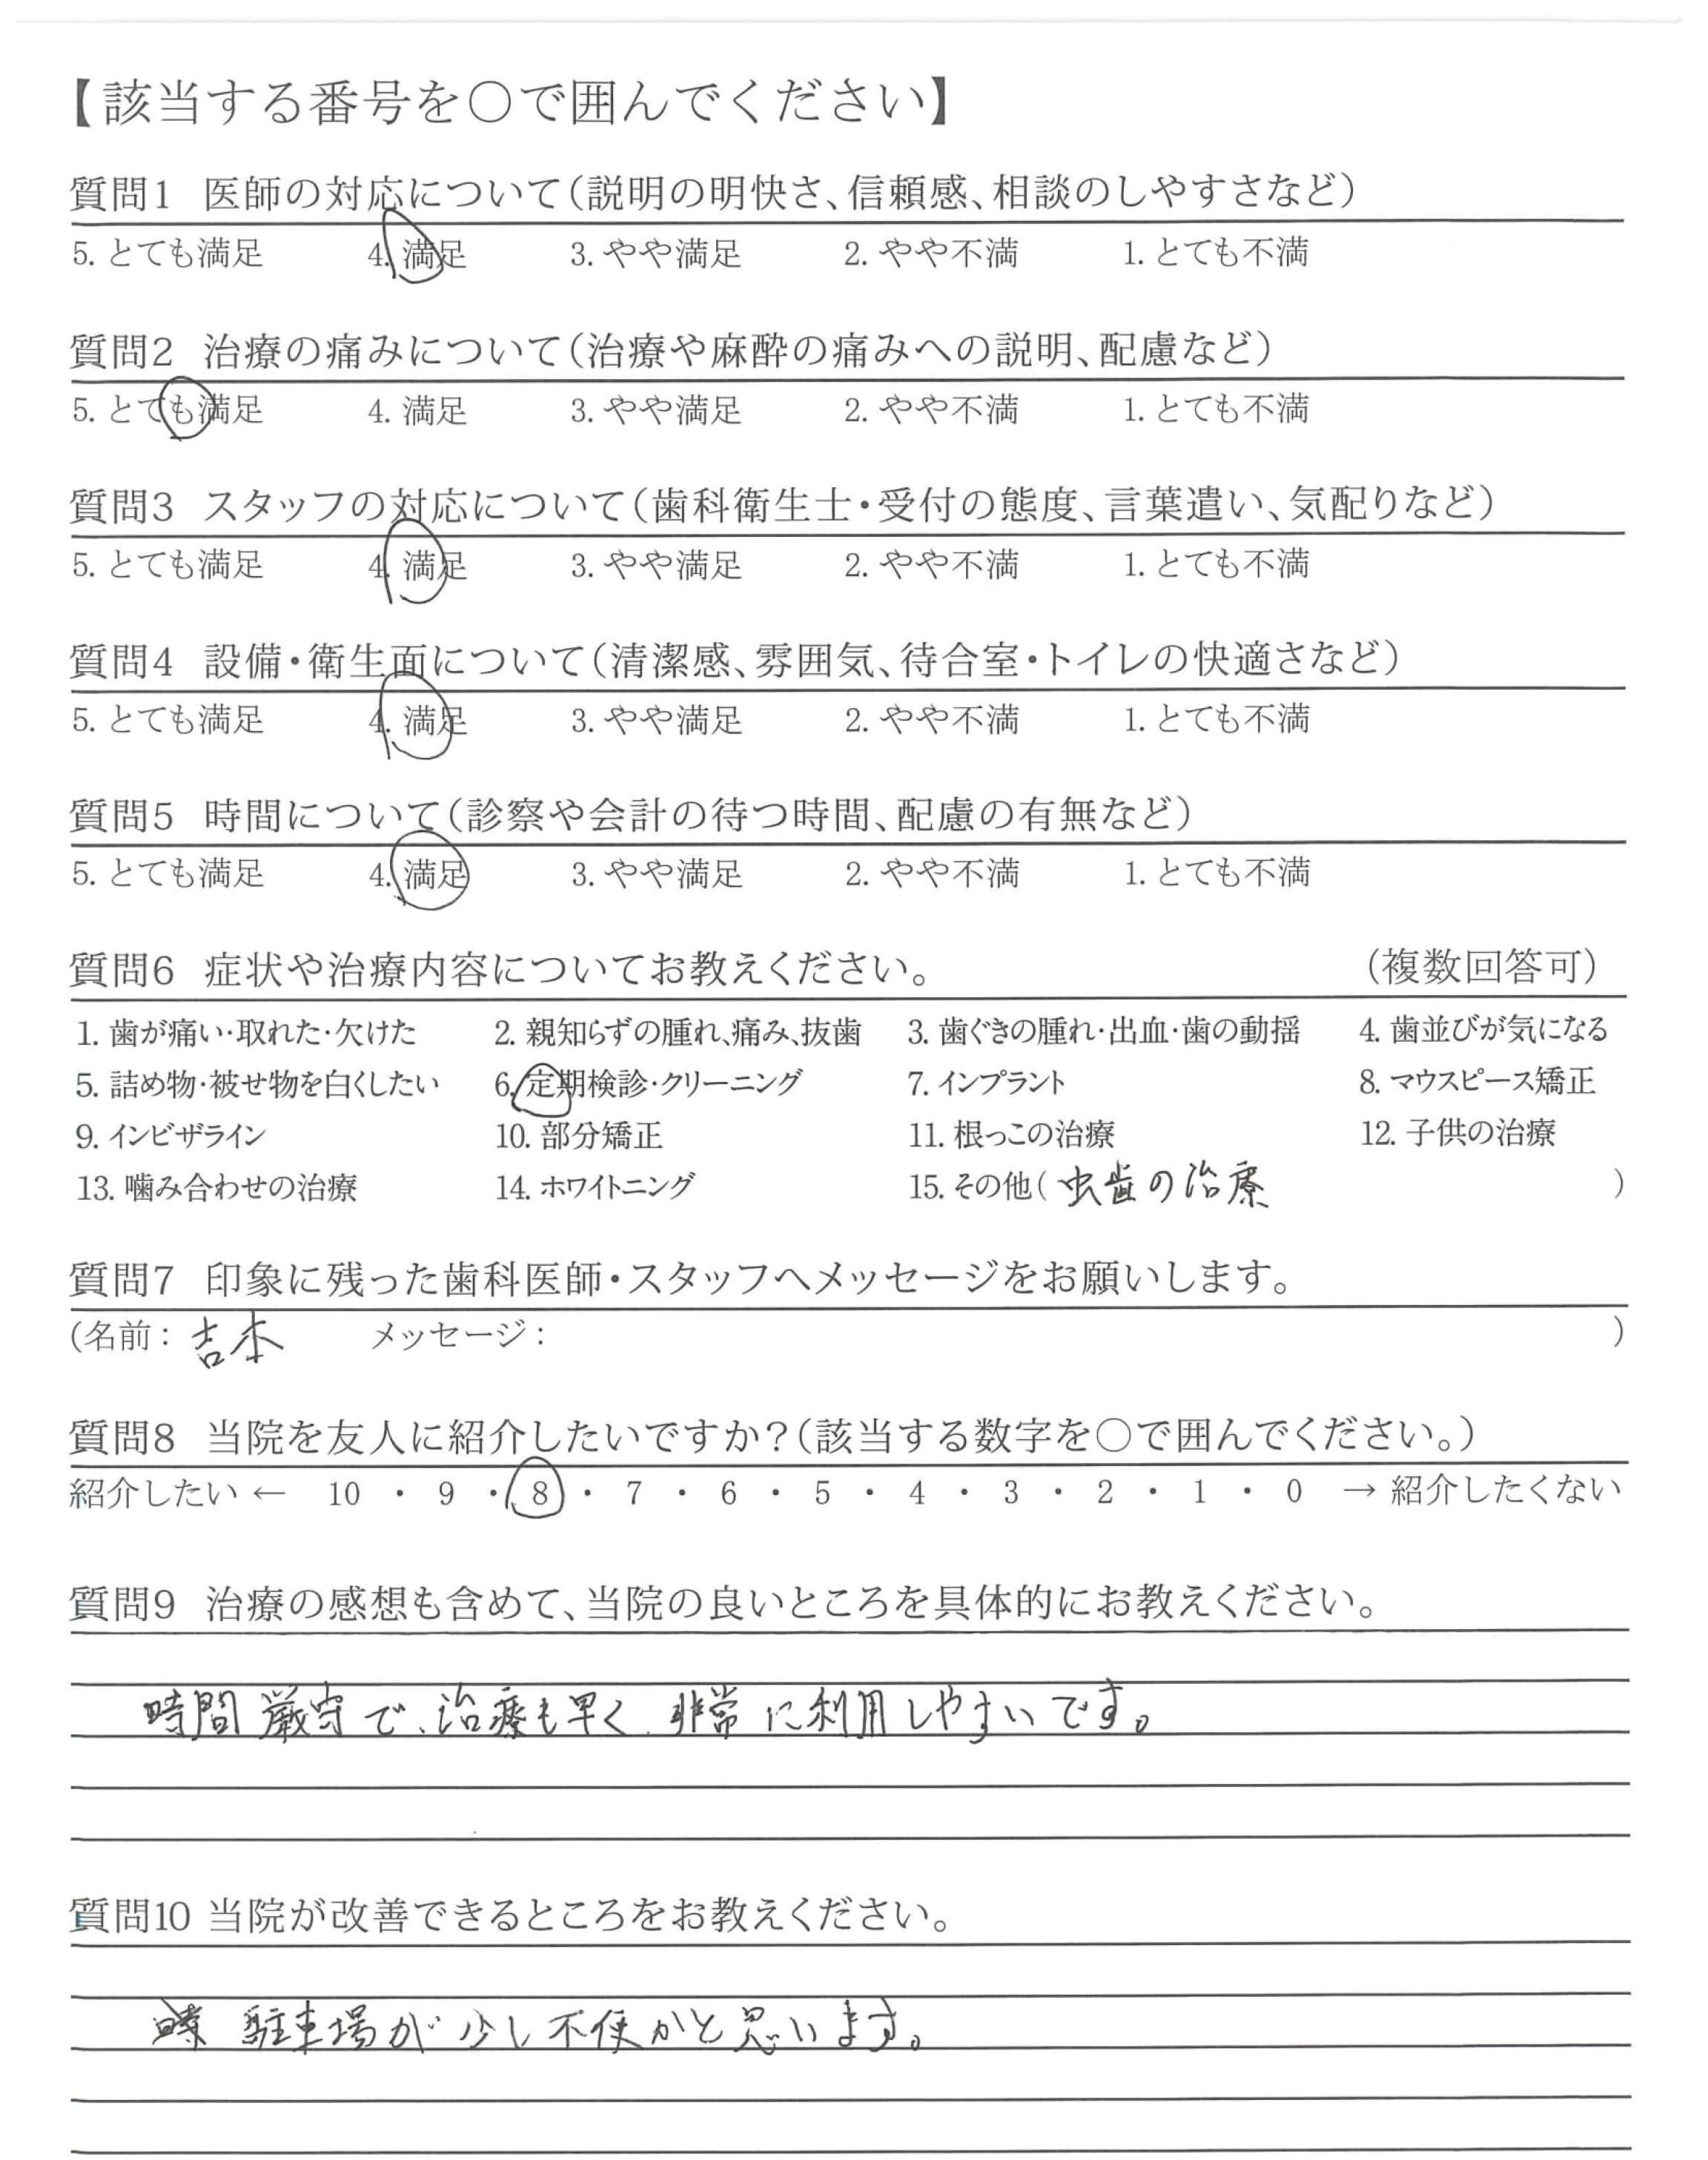 【該当する番号を〇で囲んでください】
質問1 医師の対応について(説明の明快さ、信頼感、相談のしやすさなど)
5. とても満足 4. 満足 3. やや満足 2. やや不満 1. とても不満
質問2 治療の痛みについて(治療や麻酔の痛みへの説明、配慮など)
5. とても満足 4. 満足 3. やや満足 2. やや不満 1. とても不満
質問3 スタッフの対応について(歯科衛生士・受付の態度、言葉遣い、気配りなど)
5. とても満足 4. 満足 3. やや満足 2. やや不満 1. とても不満
質問4 設備・衛生面について(清潔感、雰囲気、待合室・トイレの快適さなど)
5. とても満足 4. 満足 3. やや満足 2. やや不満 1. とても不満
質問5 時間について(診察や会計の待つ時間、配慮の有無など)
5. とても満足 4. 満足 3. やや満足 2. やや不満 1. とても不満
質問6 症状や治療内容についてお教えください。 (複数回答可)
1. 歯が痛い・取れた・欠けた 2. 親知らずの腫れ、痛み、抜歯 3. 歯ぐきの腫れ・出血・歯の動揺 4. 歯並びが気になる
5. 詰め物・被せ物を白くしたい 6. 定期検診・クリーニング 7. インプラント 8. マウスピース矯正
9. インビザライン 10. 部分矯正 11. 根っこの治療 12. 子供の治療
13. 噛み合わせの治療 14. ホワイトニング 15. その他( 虫歯の治療 )
質問7 印象に残った歯科医師・スタッフへメッセージをお願いします。
(名前: 吉本 メッセージ: )
質問8 当院を友人に紹介したいですか?(該当する数字を〇で囲んでください。)
紹介したい ← 10 ・ 9 ・ 8 ・ 7 ・ 6 ・ 5 ・ 4 ・ 3 ・ 2 ・ 1 ・ 0 → 紹介したくない
質問9 治療の感想も含めて、当院の良いところを具体的にお教えください。
時間厳守で、治療も早く、非常に利用しやすいです。
質問10 当院が改善できるところをお教えください。
駐車場が少し不便かと思います。